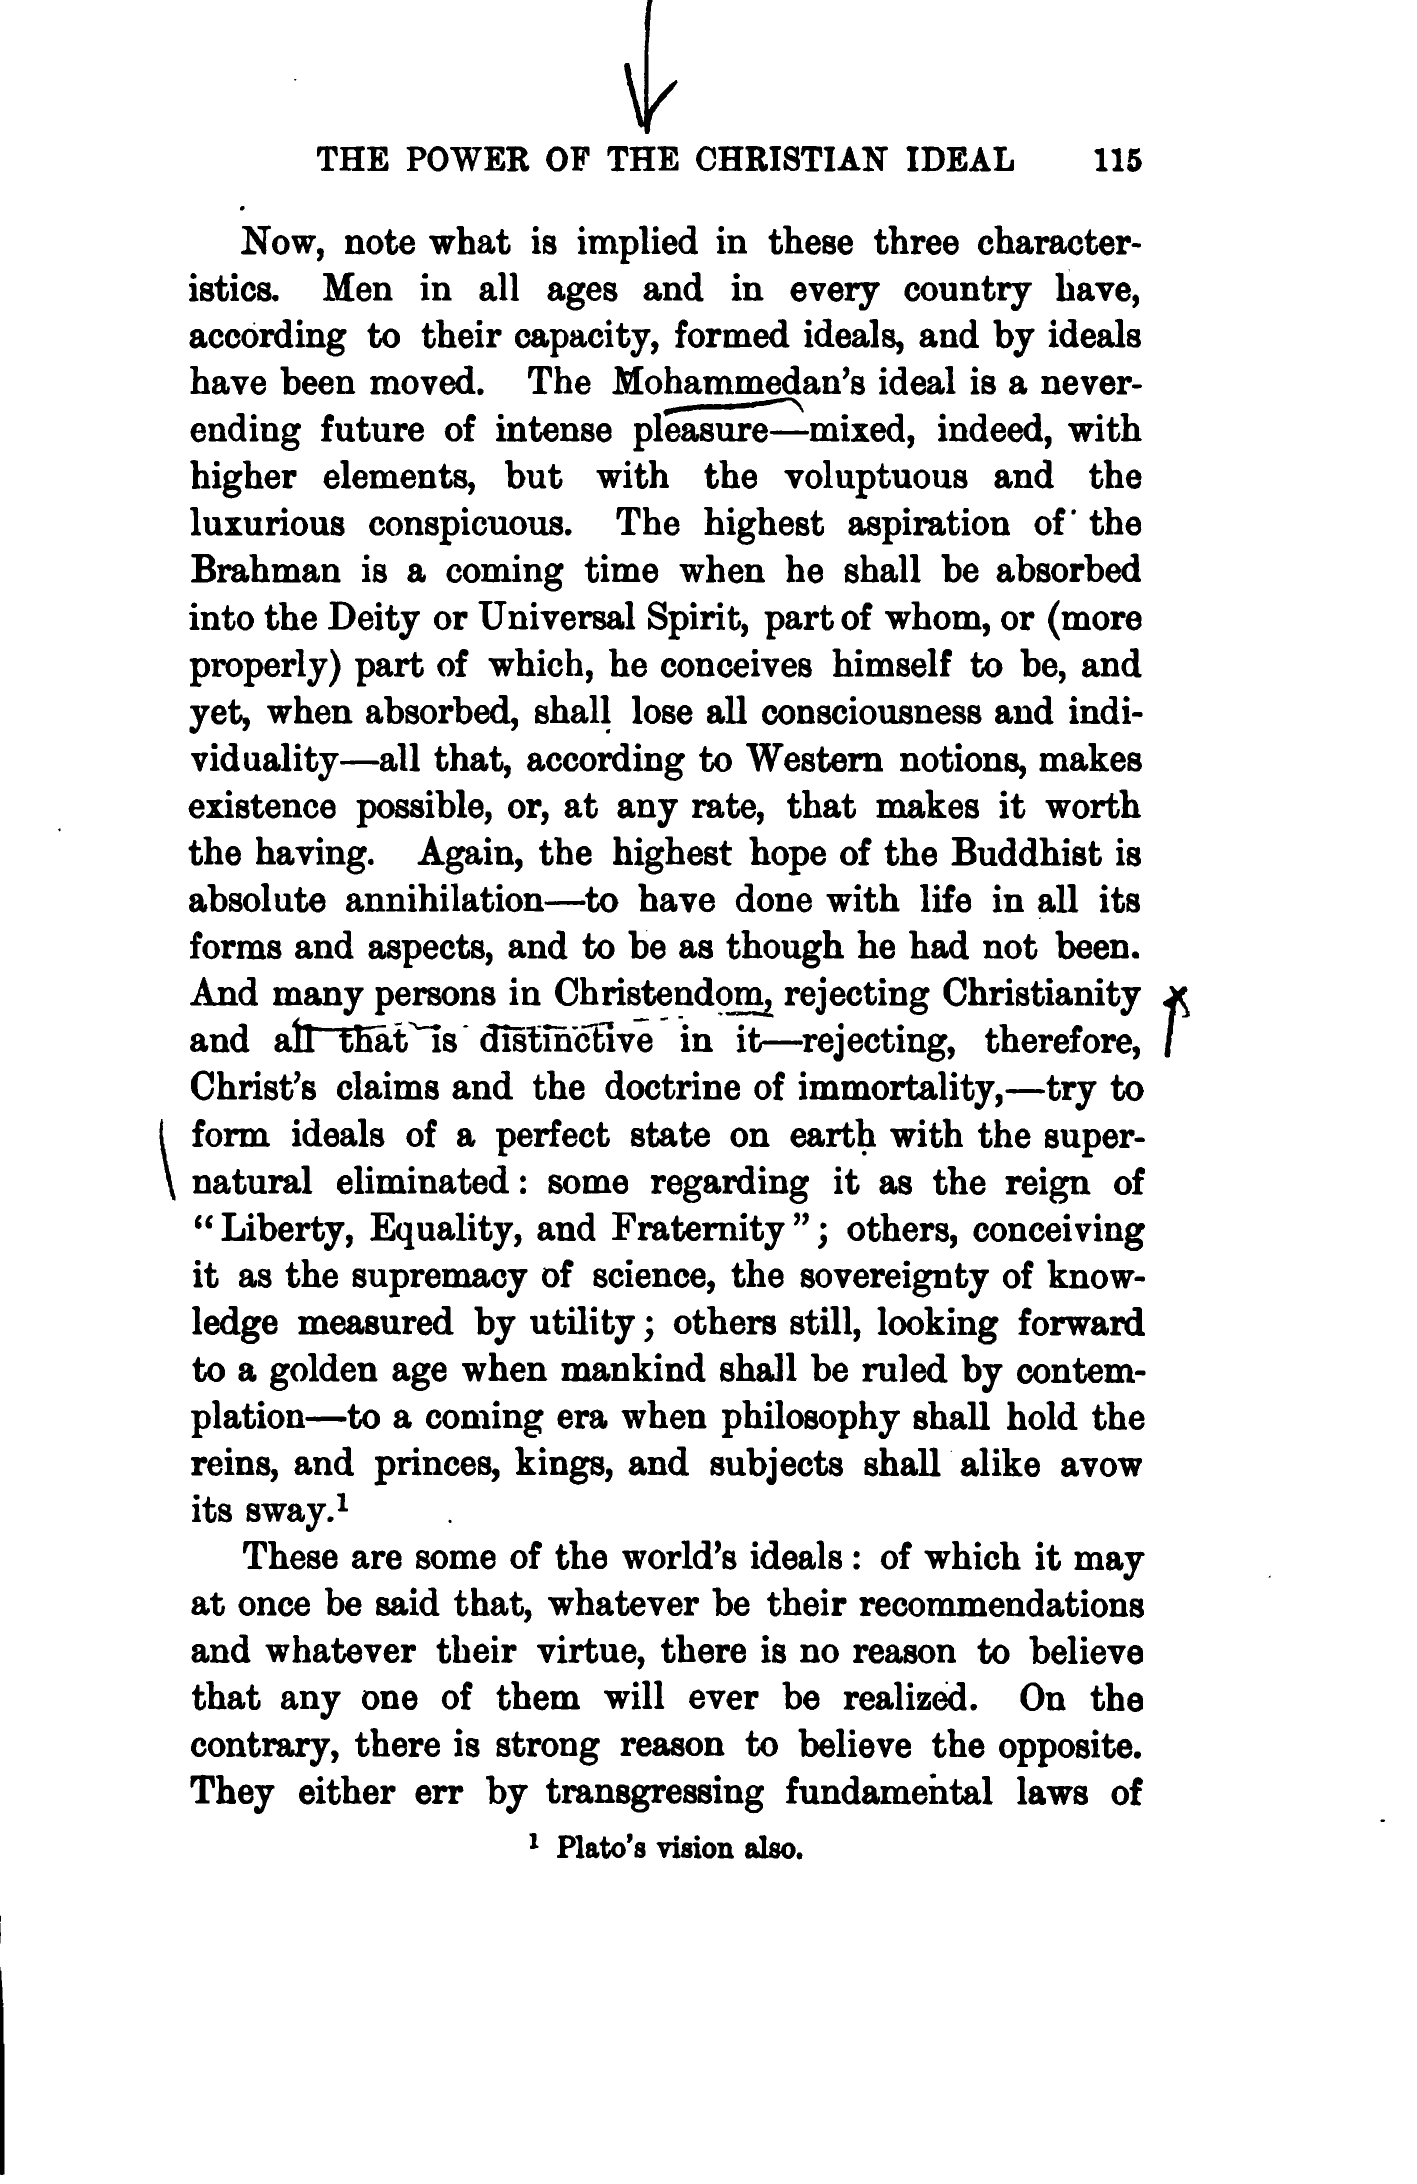 THE POWER OF THE CHRISTIAN IDEAL 115
Now, note what is implied in these three character-
istics. Men in all ages and in every country have,
according to their capacity, formed ideals, and by ideals
have been moved. The Mohammedan's ideal is a never-
ending future of intense pleasure—mixed, indeed, with
higher elements, but with the voluptuous and the
luxurious conspicuous. The highest aspiration of the
Brahman is a coming time when he shall be absorbed
into the Deity or Universal Spirit, part of whom, or (more
properly) part of which, he conceives himself to be, and
yet, when absorbed, shall lose all consciousness and indi-
viduality—all that, according to Western notions, makes
existence possible, or, at any rate, that makes it worth
the having. Again, the highest hope of the Buddhist is
absolute annihilation—to have done with life in all its
forms and aspects, and to be as though he had not been.
And many persons in Christendom, rejecting Christianity
and all that is distinctive in it—rejecting, therefore,
Christ's claims and the doctrine of immortality,—try to
form ideals of a perfect state on earth with the super-
natural eliminated: some regarding it as the reign of
"Liberty, Equality, and Fraternity"; others, conceiving
it as the supremacy of science, the sovereignty of know-
ledge measured by utility; others still, looking forward
to a golden age when mankind shall be ruled by contem-
plation—to a coming era when philosophy shall hold the
reins, and princes, kings, and subjects shall alike avow
its sway.¹
These are some of the world's ideals: of which it may
at once be said that, whatever be their recommendations
and whatever their virtue, there is no reason to believe
that any one of them will ever be realized. On the
contrary, there is strong reason to believe the opposite.
They either err by transgressing fundamental laws of
¹ Plato's vision also.